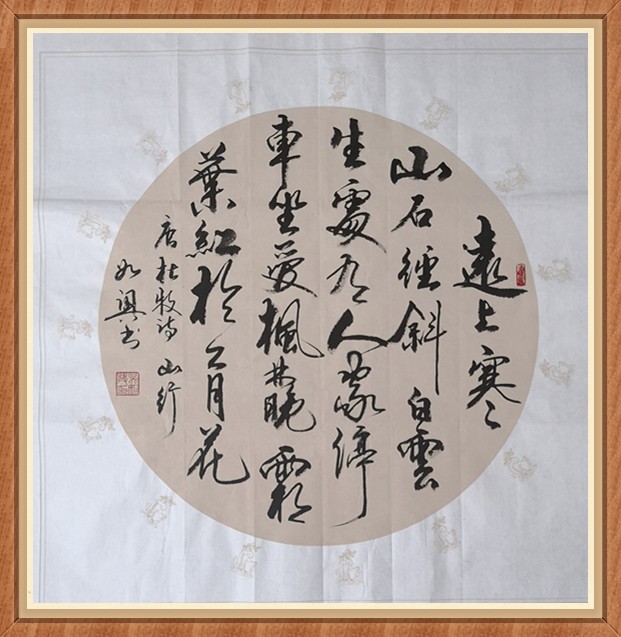 遠上寒
山石徑斜白雲
生處有人家停
車坐愛楓林晚霜
葉紅於二月花
唐杜牧詩山行
如興书